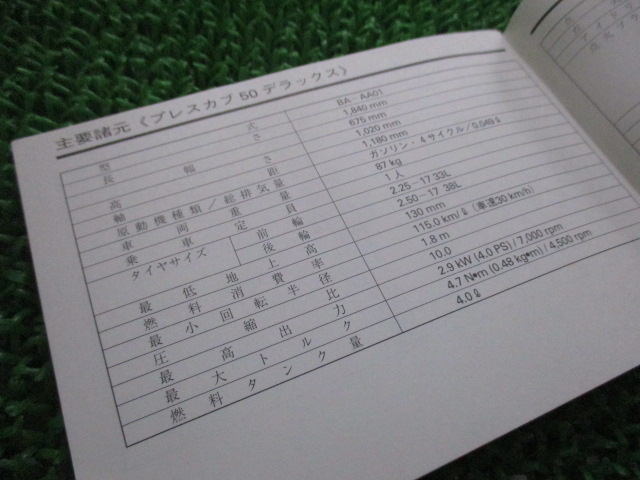 主要諸元《プレスカブ50デラックス》
型式 BA-AA01
長さ 1,840 mm
幅 675 mm
高さ 1,020 mm
軸距 1,180 mm
原動機種類/総排気量 ガソリン・4サイクル/0.049ℓ
車両重量 87 kg
乗車定員 1人
タイヤサイズ 前輪 2.25-17 33L
後輪 2.50-17 38L
最低地上高 130 mm
燃料消費率 115.0 km/ℓ (車速30 km/h)
最小回転半径 1.8 m
圧縮比 10.0
最高出力 2.9 kW (4.0 PS)/7,000 rpm
最大トルク 4.7 N•m (0.48 kg•m)/4,500 rpm
燃料タンク量 4.0ℓ